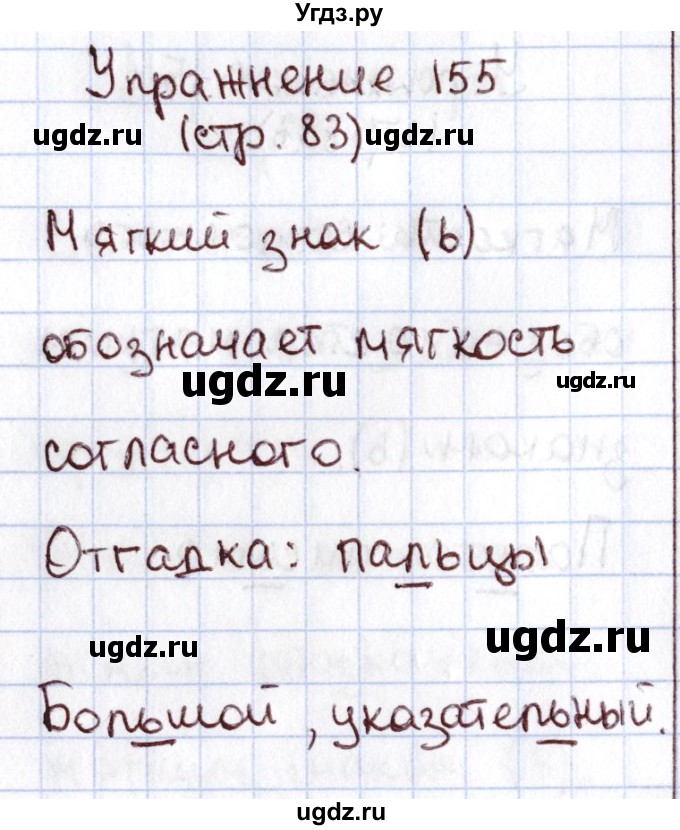 Угдз.ру
Упражнение 155
ugdz.ru (стр. 83) ugdz.ru
Мягкий знак (ь)
обозначает мягкость
ugdz.ru ugdz.ru
согласного.
Отгадка: пальцы
ugdz.ru ugdz.ru
Большой, указательный.
ugdz.ru